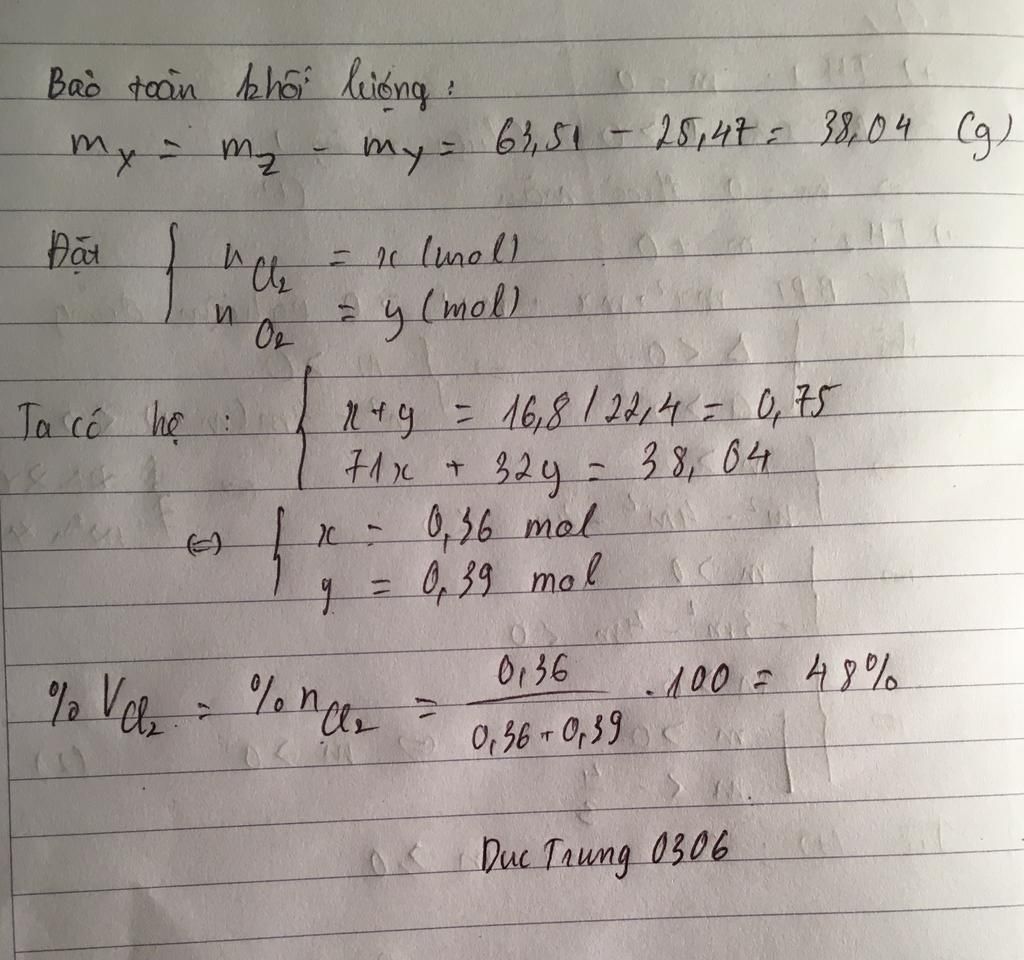 Bảo toàn khối lượng :
m_X = m_Z - m_Y = 63,51 - 25,47 = 38,04 (g)
Đặt { n_Cl2 = x (mol)
n_O2 = y (mol)
Ta có hệ : { x+y = 16,8 / 22,4 = 0,75
71x + 32y = 38,04
<=> { x = 0,36 mol
y = 0,39 mol
%V_Cl2 = %n_Cl2 = 0,36 / (0,36 + 0,39) . 100 = 48%
Duc Trung 0306